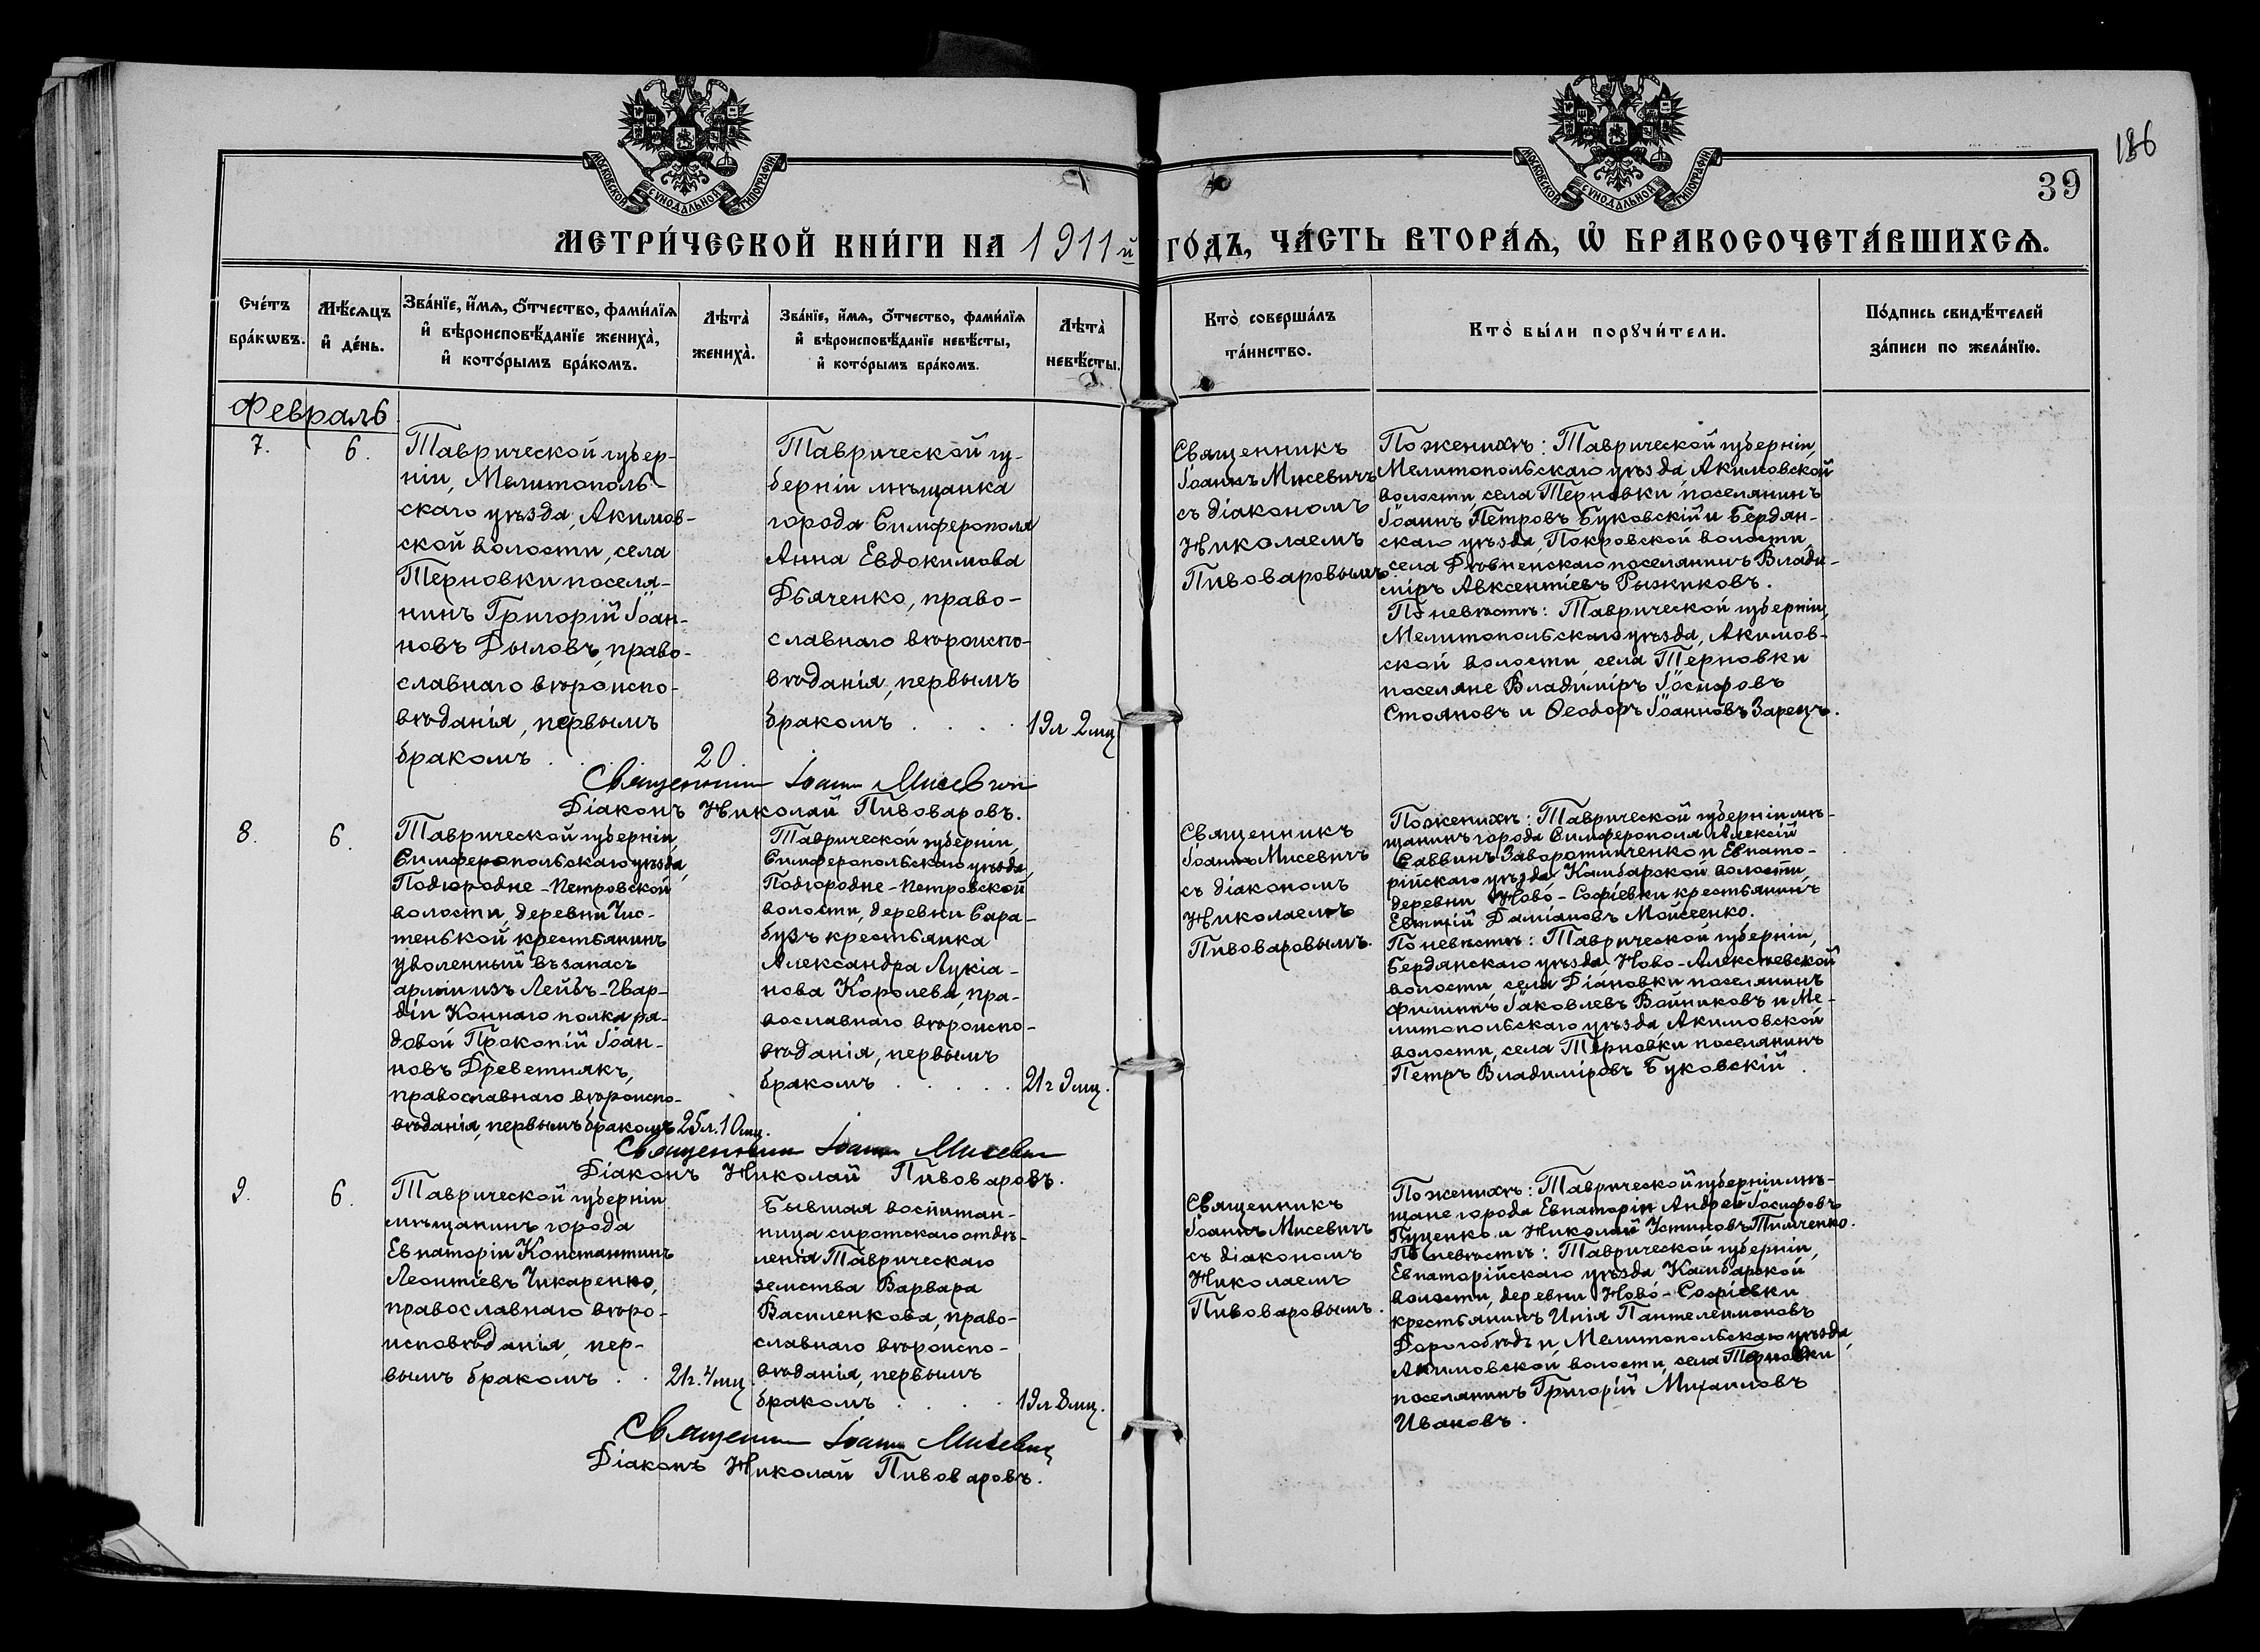 МОСКОВСКОЙ СУНОДАЛЬНОЙ ТИПОГРАФІИ
МОСКОВСКОЙ СУНОДАЛЬНОЙ ТИПОГРАФІИ
186
39
МЕТРИ́ЧЕСКОЙ КНИ́ГИ НА 1911й ГО́ДЪ, ЧА́СТЬ ВТОРА́Ѧ, Ѿ БРАКОСОЧЕТА́ВШИХСѦ.
Сче́тъ
бра́кѡвъ.
Мѣ́сѧцъ
и҆ де́нь.
Зва́нїе, и҆́мѧ, ѻ҆́тчество, фами́лїѧ
и҆ вѣроисповѣ́данїе жениха̀,
и҆ кото́рымъ бра́комъ.
Лѣта̀
жениха̀.
Зва́нїе, и҆́мѧ, ѻ҆́тчество, фами́лїѧ
и҆ вѣроисповѣ́данїе невѣ́сты,
и҆ кото́рымъ бра́комъ.
Лѣта̀
невѣ́сты.
Кто̀ соверша́лъ
та́инство.
Кто̀ бы́ли порꙋчи́тели.
По́дпись свидѣ́телей
за́писи по жела́нїю.
Февраль
7.
6.
Таврической губер-
ніи, Мелитополь-
скаго уѣзда, Акимов-
ской волости, села
Терновки поселя-
нинъ Григорій Іоан-
новъ Дыловъ, право-
славнаго вѣроиспо-
вѣданія, первымъ
бракомъ . . .
20.
Таврической гу-
берніи мѣщанка
города Симферополя
Анна Евдокимова
Дьяченко, право-
славнаго вѣроиспо-
вѣданія, первымъ
бракомъ . . . .
19л 2мц
Священникъ
Іоаннъ Мисевичъ
съ діакономъ
Николаемъ
Пивоваровымъ
По женихѣ: Таврической губерніи,
Мелитопольскаго уѣзда, Акимовской
волости, села Терновки поселянинъ
Іоаннъ Петровъ Буковскій и Бердян-
скаго уѣзда, Покровской волости,
села Дѣвненскаго поселянинъ Влади-
міръ Авксентіевъ Рыжиковъ.
По невѣстѣ: Таврической губерніи,
Мелитопольскаго уѣзда, Акимов-
ской волости, села Терновки
поселяне Владиміръ Іосифовъ
Стояновъ и Ѳеодоръ Іоанновъ Зарецъ.
Священникъ Іоаннъ Мисевичъ
Діаконъ Николай Пивоваровъ.
8.
6.
Таврической губерніи,
Симферопольскаго уѣзда,
Подгородне-Петровской
волости, деревни Чис-
тенькой крестьянинъ
уволенный въ запасъ
арміи изъ Лейбъ-Гвар-
діи Коннаго полка ря-
довой Прокопій Іоан-
новъ Древетнякъ,
православнаго вѣроиспо-
вѣданія, первымъ бракомъ
25л.10мц.
Таврической губерніи,
Симферопольскаго уѣзда,
Подгородне-Петровской
волости, деревни Сара-
бузъ крестьянка
Александра Лукіа-
нова Королева, пра-
вославнаго вѣроиспо-
вѣданія, первымъ
бракомъ . . . . .
21г 9мц.
Священникъ
Іоаннъ Мисевичъ
съ діакономъ
Николаемъ
Пивоваровымъ.
По женихѣ: Таврической губерніи мѣ-
щанинъ города Симферополя Алексій
Саввинъ Заворотинченко и Евпато-
рійскаго уѣзда, Камбарской волости,
деревни Ново-Софіевки крестьянинъ
Евѳимій Даміановъ Моисеенко.
По невѣстѣ: Таврической губерніи,
Бердянскаго уѣзда Ново-Алексѣевской
волости, села Діановки поселянинъ
Филиппъ Іаковлевъ Войниковъ и Ме-
литопольскаго уѣзда, Акимовской
волости, села Терновки поселянинъ
Петръ Владиміровъ Буковскій.
Священникъ Іоаннъ Мисевичъ
Діаконъ Николай Пивоваровъ.
9.
6.
Таврической губерніи
мѣщанинъ города
Евпаторіи Константинъ
Леонтіевъ Чикаренко,
православнаго вѣро-
исповѣданія, пер-
вымъ бракомъ . .
21г.4мц
Бывшая воспитан-
ница сиротскаго отдѣ-
ленія Таврическаго
земства Варвара
Василенкова, право-
славнаго вѣроиспо-
вѣданія, первымъ
бракомъ . . . .
19л 8мц.
Священникъ
Іоаннъ Мисевичъ
съ діакономъ
Николаемъ
Пивоваровымъ.
По женихѣ: Таврической губерніи мѣ-
щане города Евпаторіи Андрей Іосифовъ
Куценко и Николай Устиновъ Тимченко.
По невѣстѣ: Таврической губерніи,
Евпаторійскаго уѣзда, Камбарской
волости, деревни Ново-Софіевки
крестьянинъ Илія Пантелеимоновъ
Дорогобѣдъ и, Мелитопольскаго уѣзда,
Акимовской волости, села Терновки
поселянинъ Григорій Михаиловъ
Ивановъ.
Священникъ Іоаннъ Мисевичъ
Діаконъ Николай Пивоваровъ.